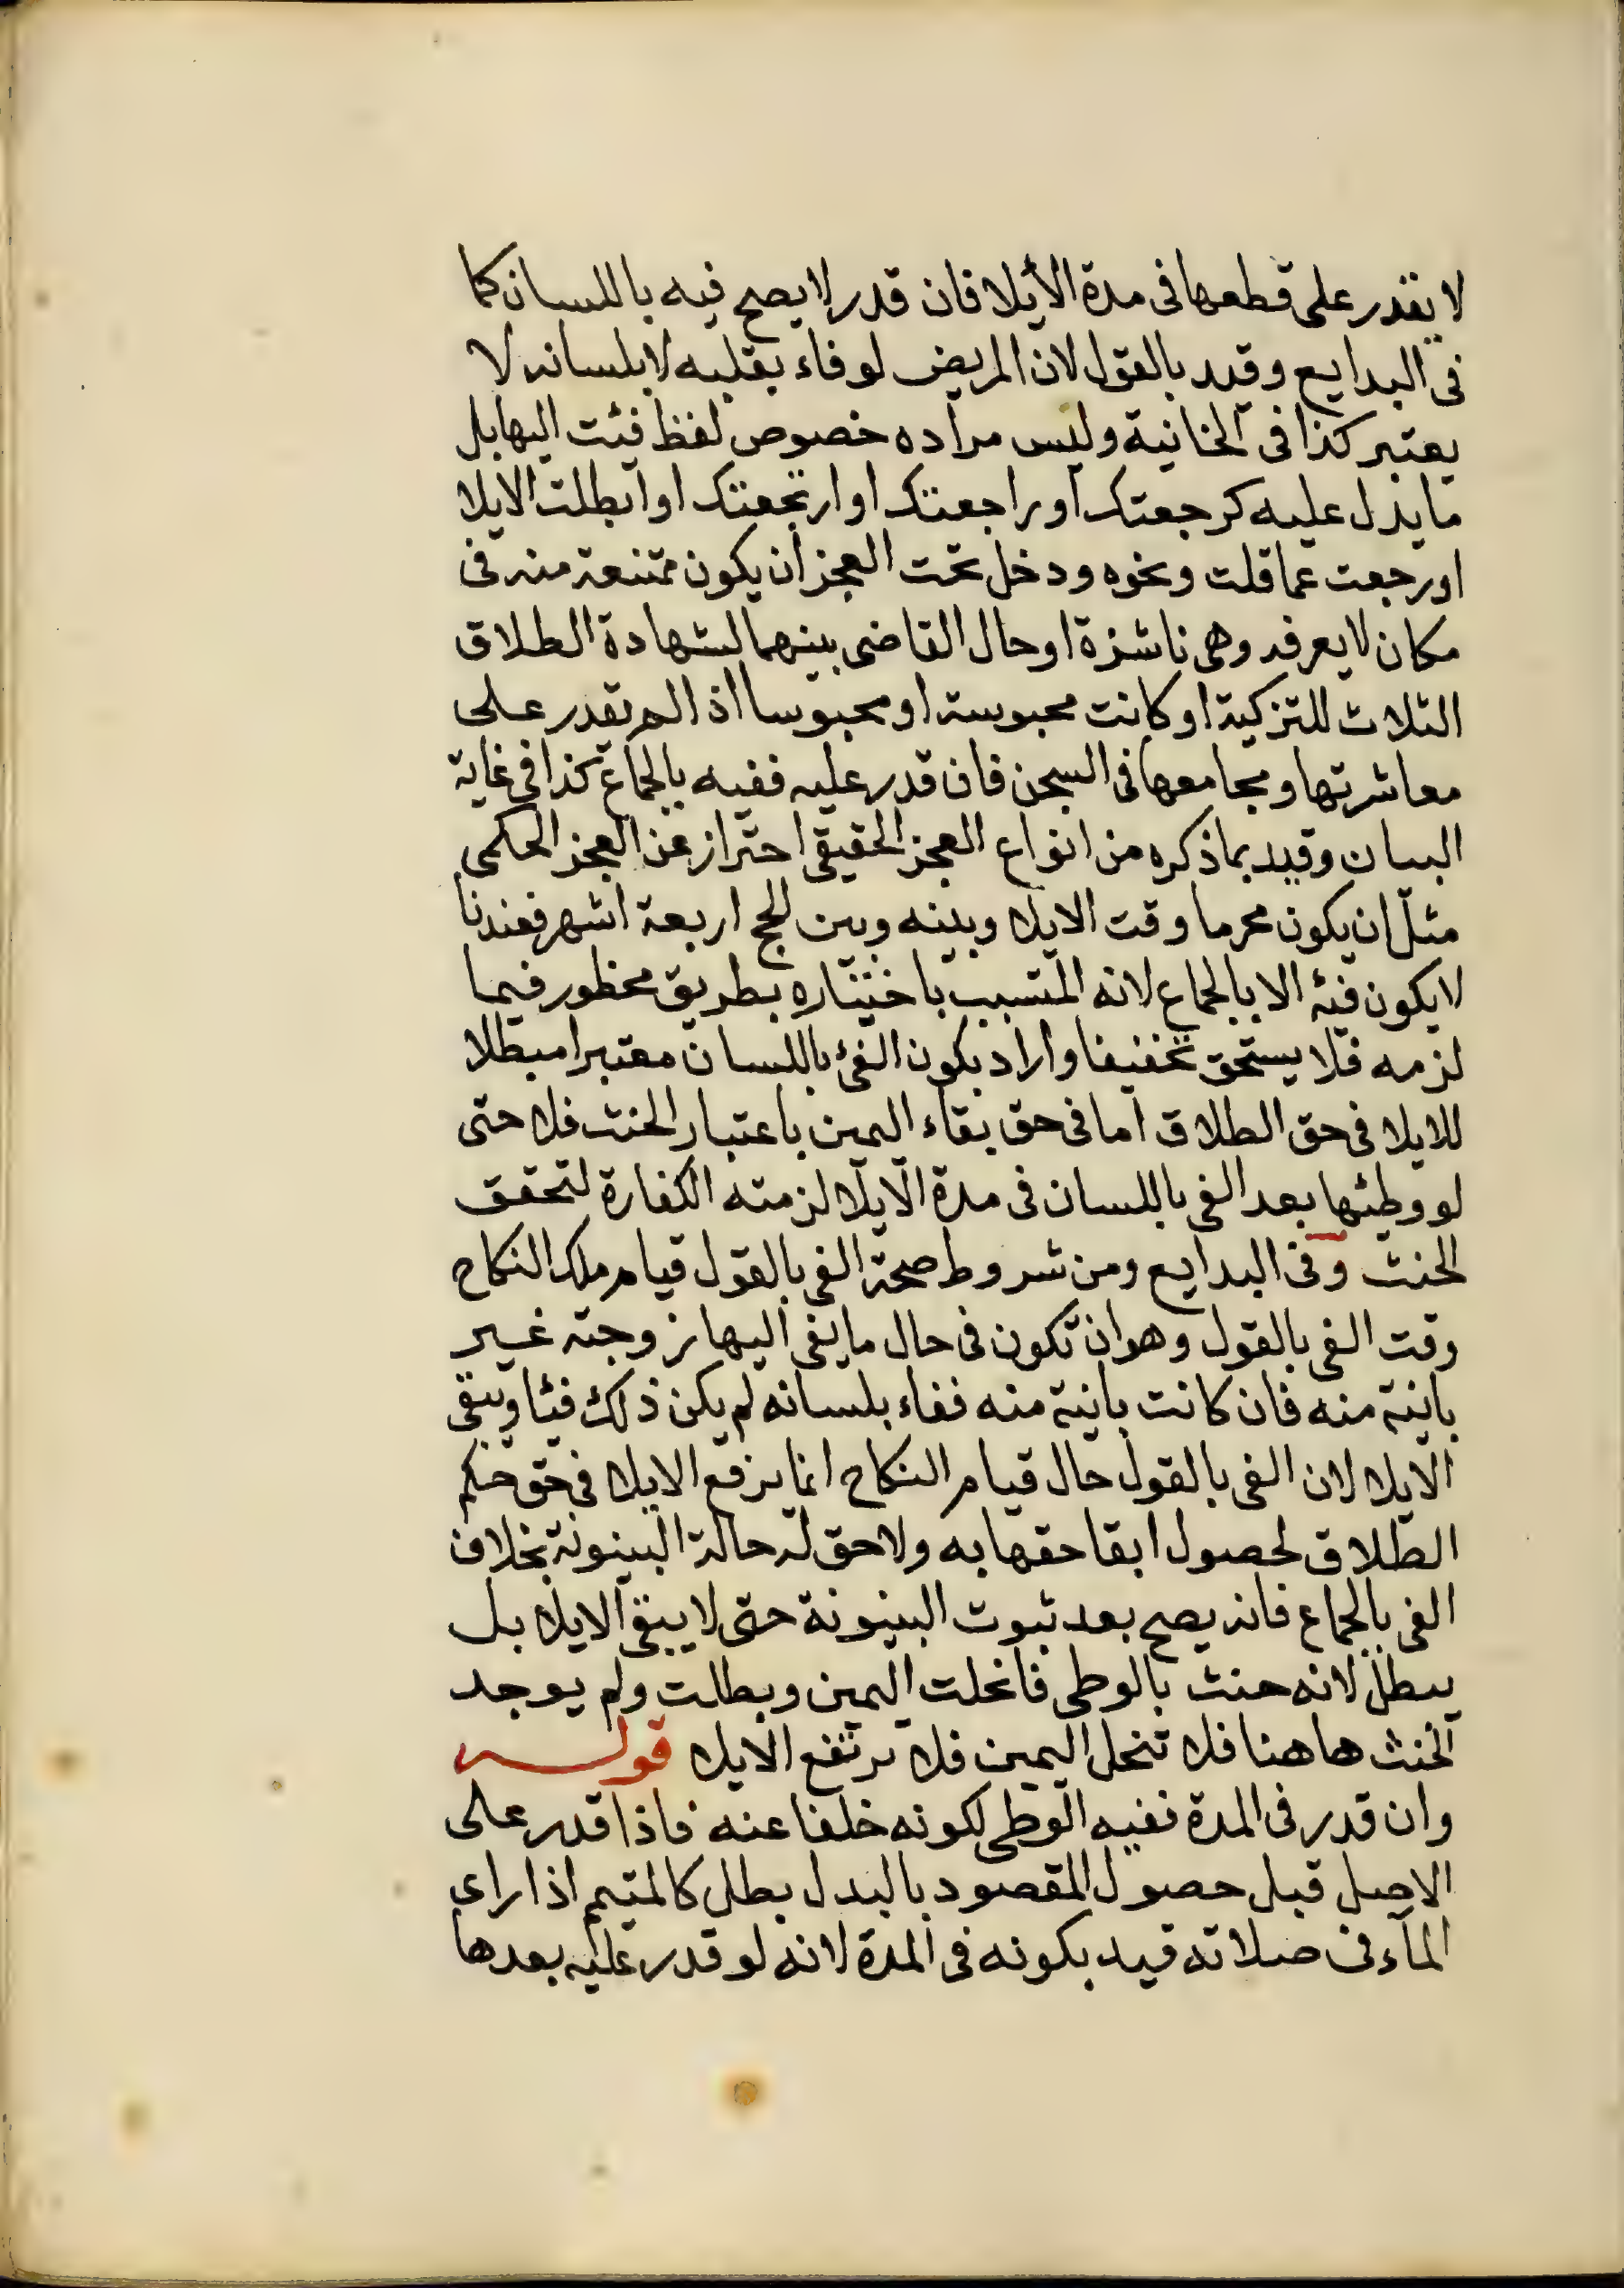 لا يقدر على قطعها فى مدة الأيلا فان قدر لا يصح فيه باللسان كما
فى البدايع وقيد بالقول لان المريض لو فاء بقلبه لا بلسانه لا
يعتبر كذا فى الخانية وليس مراده خصوص لفظ فئت اليها بل
ما يدل عليه كرجعتك او راجعتك او ارتجعتك او ابطلت الايلا
او رجعت عما قلت ونحوه ودخل تحت العجز ان يكون ممتنعة منه فى
مكان لا يعرفه وهى ناشزة او حال القاضى بينهما لشهادة الطلاق
الثلاث للتزكية او كانت محبوسة او محبوسا اذا لم تقدر على
معاشرتها ومجامعها فى السجن فان قدر عليه ففيه بالجماع كذا فى غاية
البيان وقيد بما ذكره من انواع العجز الحقيقى احتراز عن العجز الحكمى
مثل ان يكون محرما وقت الايلا وبينه وبين الحج اربعة اشهر فعندنا
لا يكون فئه الا بالجماع لانه المتسبب باختياره بطريق محظور فيما
لزمه فلا يستحق تخفيفا واراد بكون الفئ باللسان معتبرا مبطلا
للايلا فى حق الطلاق اما فى حق بقاء اليمين باعتبار الحنث فلا حتى
لو وطئها بعد الفى باللسان فى مدة الايلا لزمته الكفارة لتحقق
الحنث وفى البدايع ومن شروط صحة الفى بالقول قيام ملك النكاح
وقت الفى بالقول وهو ان تكون فى حال ما يفى اليها زوجته غير
باينة منه فان كانت باينة منه ففاء بلسانه لم يكن ذلك فئا ويبقى
الايلا لان الفى بالقول حال قيام النكاح انما يرفع الايلا فى حق حكم
الطلاق لحصول ابقا حقها به ولا حق له حالة البينونة بخلاف
الفى بالجماع فانه يصح بعد ثبوت البينونة حتى لا يبقى الايلا بل
يبطل لانه حنث بالوطى فانحلت اليمين وبطلت ولم يوجد
الحنث هاهنا فلا تنحل اليمين فلا يرتفع الايلا قوله
وان قدر فى المدة ففيه الوطى لكونه خلفا عنه فاذا قدر على
الاصل قبل حصول المقصود بالبدل بطل كالمتيمم اذا راى
الماء فى صلاته قيد بكونه فى المدة لانه لو قدر عليه بعدها